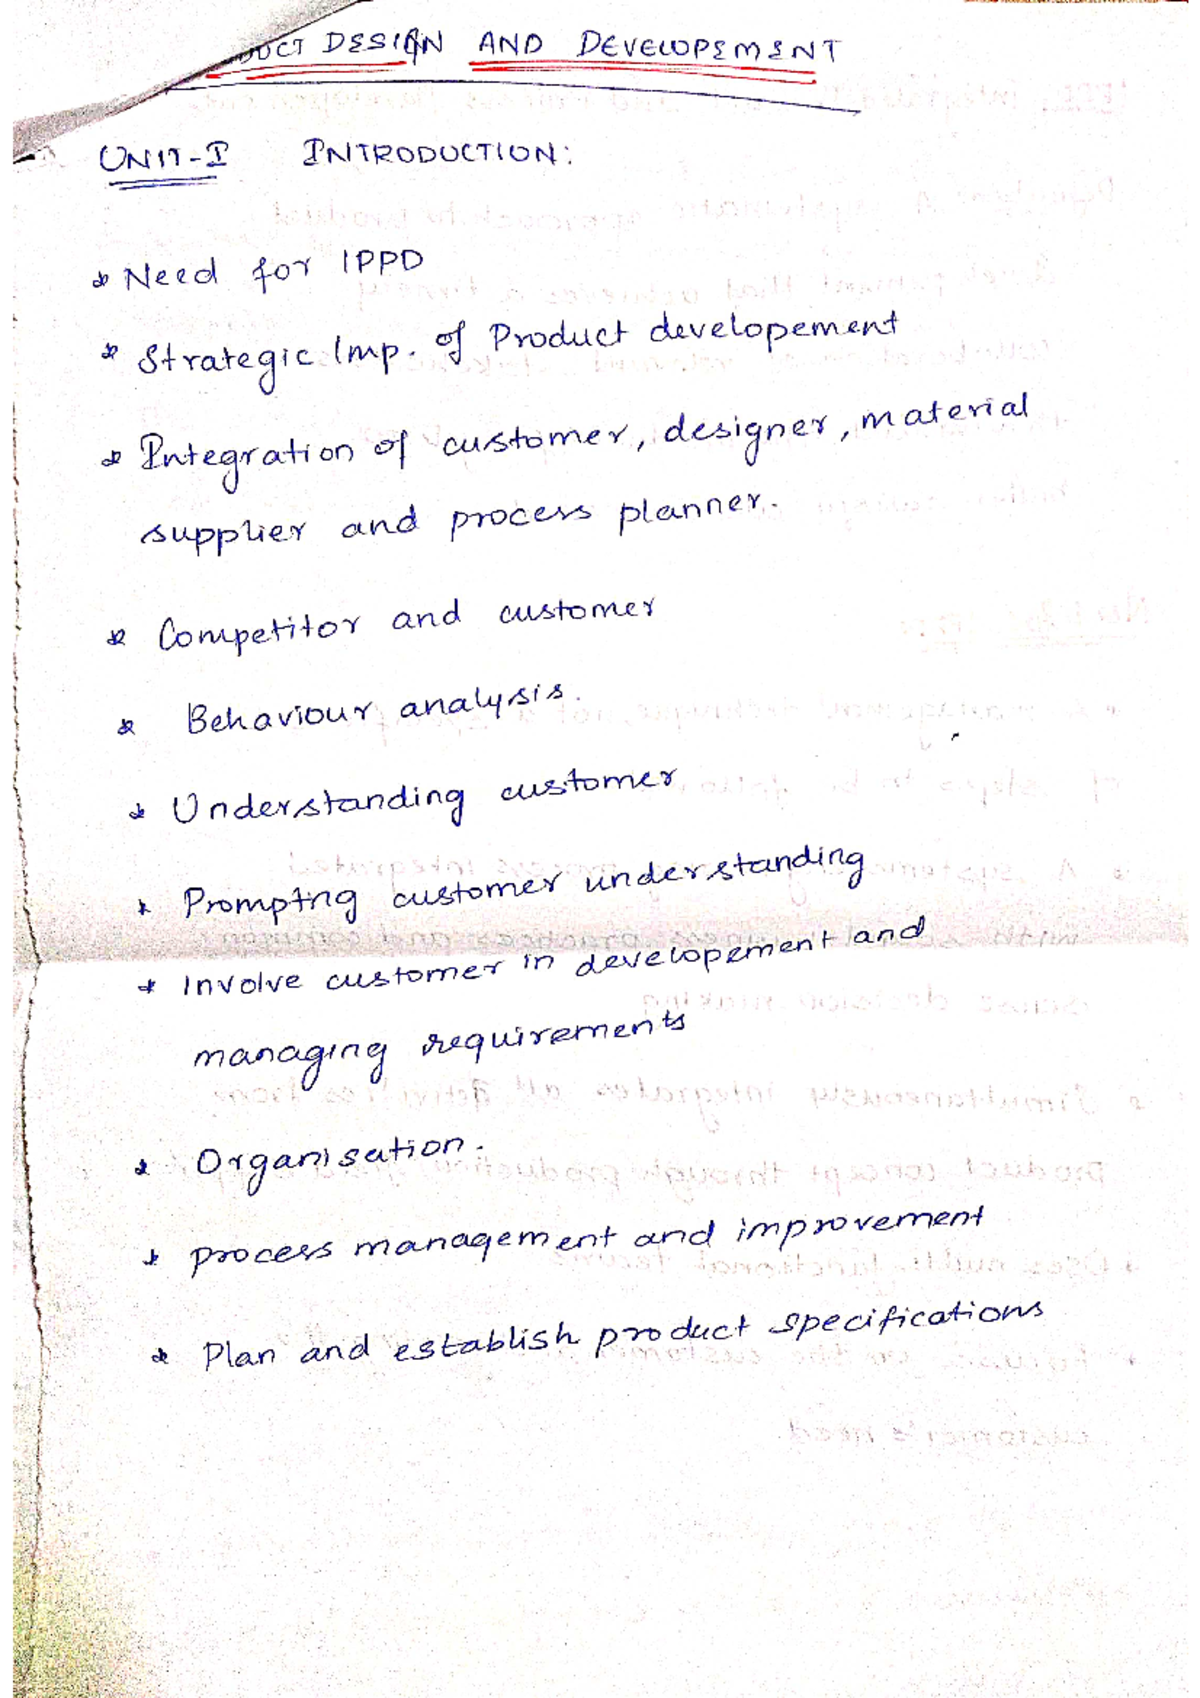 DUCT DESIGN AND DEVELOPEMENT
UNIT-I INTRODUCTION:
* Need for IPPD
* Strategic Imp. of Product developement
* Integration of customer, designer, material
supplier and process planner.
* Competitor and customer
* Behaviour analysis.
* Understanding customer
* Prompting customer understanding
* Involve customer in developement and
managing requirements
* Organisation.
* process management and improvement
* Plan and establish product specifications